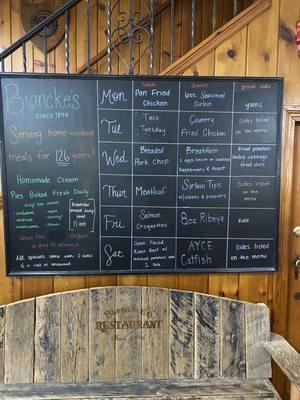 Bianckes
SINCE 1898
Serving home-cooked
meals for 126 years
Homemade Cream
Pies Baked Fresh Daily
Breakfast
until
11 am
Whole Pies
Order
a day in advance
All specials come with 2 sides
& a roll or cornbread
lunch
dinner
special sides
Mon
Pan Fried
Chicken
Seasoned
Sirloin
yams
Tue
Taco
Tuesday
Country
Fried Chicken
Sides listed
on the menu
Wed
Breaded
Pork Chop
Breakfast
2 eggs, bacon or sausage
hashbrowns & toast
fried potatoes
boiled cabbage
fried corn
Thur
Meatloaf
Sirloin Tips
w/onions & peppers
Sides listed
on the menu
Fri
Salmon
Croquets
8oz Ribeye
Kale
Sat
Open Faced
Roast Beef w/
mashed potatoes and
2 sides
AYCE
Catfish
Sides listed
on the menu
RESTAURANT